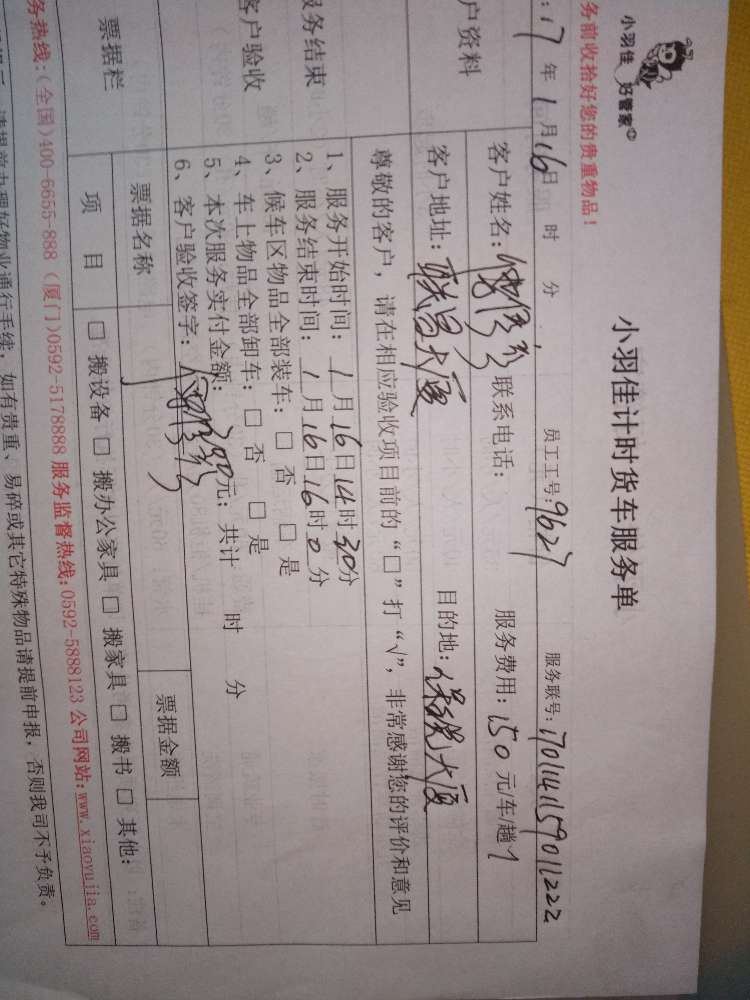 小羽佳 好管家
小羽佳计时货车服务单
务前收拾好您的贵重物品！
: 17 年 1 月 16 日 时 分 员工工号: 9627 服务联号: 170114115901222
户资料
客户姓名: 联系电话: 服务费用: 150 元/车/趟
客户地址: 联昌大厦 目的地: 保税大厦
尊敬的客户，请在相应验收项目前的“□”打“√”，非常感谢您的评价和意见
服务结束
客户验收
1、服务开始时间: 1 月 16 日 14 时 30 分
2、服务结束时间: 1 月 16 日 16 时 0 分
3、候车区物品全部装车: □ 否 □ 是
4、车上物品全部卸车: □ 否 □ 是
5、本次服务实付金额: 元; 共计 时 分
6、客户验收签字:
票据栏
票据名称 票据金额
项 目 □ 搬设备 □ 搬办公家具 □ 搬家具 □ 搬书 □ 其他:
务热线:(全国)400-6655-888 (厦门)0592-5178888 服务监督热线:0592-5888123 公司网站:www.xiaoyujia.com
请提前办理好物业通行手续，如有贵重、易碎或其它特殊物品请提前申报，否则我司不予负责。